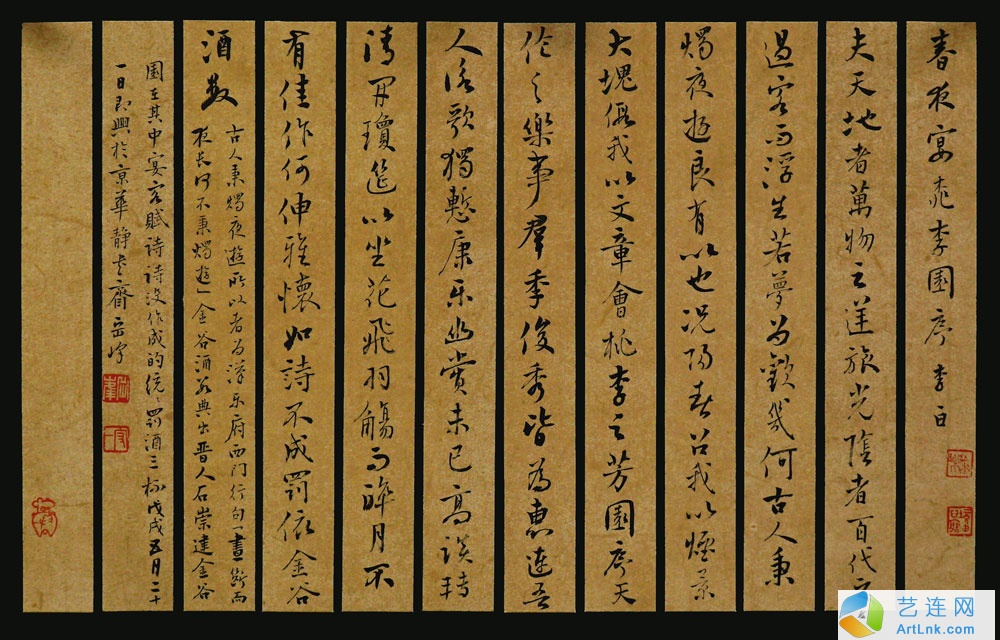 春夜宴桃李園序 李白
夫天地者萬物之逆旅光陰者百代之
過客而浮生若夢為歡幾何古人秉
燭夜遊良有以也況陽春召我以煙景
大塊假我以文章會桃李之芳園序天
倫之樂事羣季俊秀皆為惠連吾
人詠歌獨慙康乐幽賞未已高談轉
清開瓊筵以坐花飛羽觴而醉月不
有佳作何伸雅懷如詩不成罰依金谷
酒數
古人秉燭夜遊所以者為乐府西門行句晝短而
夜長何不秉燭遊金谷酒數典出晋人石崇建金谷
園在其中宴客賦詩詩沒作成的統々罰酒三杯戊戌五月二十
一日即興於京華靜齋岳峰
艺连网
ArtLnk.com